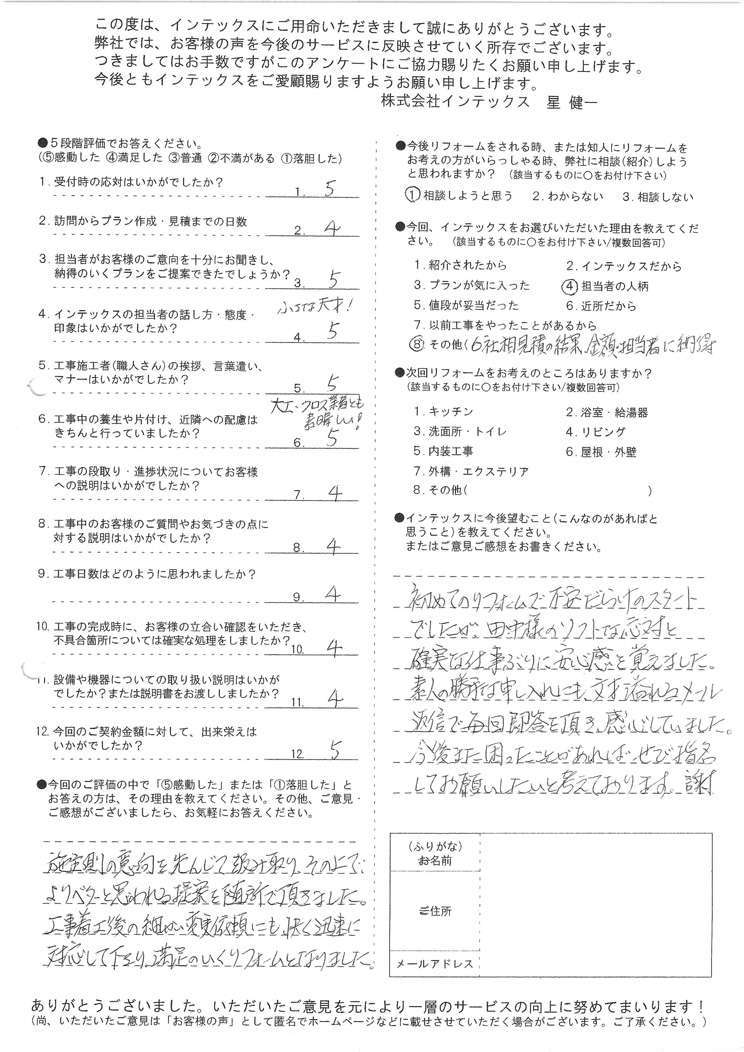 この度は、インテックスにご用命いただきまして誠にありがとうございます。
弊社では、お客様の声を今後のサービスに反映させていく所存でございます。
つきましてはお手数ですがこのアンケートにご協力賜りたくお願い申し上げます。
今後ともインテックスをご愛顧賜りますようお願い申し上げます。
株式会社インテックス 星 健一
●5段階評価でお答えください。
(⑤感動した ④満足した ③普通 ②不満がある ①落胆した)
1. 受付時の応対はいかがでしたか?
1. 5
2. 訪問からプラン作成・見積までの日数
2. 4
3. 担当者がお客様のご意向を十分にお聞きし、
納得のいくプランをご提案できたでしょうか?
3. 5
4. インテックスの担当者の話し方・態度・
印象はいかがでしたか?
天才!
4. 5
5. 工事施工者(職人さん)の挨拶、言葉遣い、
マナーはいかがでしたか?
5. 5
大工、クロス業者とも
素晴しい!
6. 工事中の養生や片付け、近隣への配慮は
きちんと行っていましたか?
6. 5
7. 工事の段取り・進捗状況についてお客様
への説明はいかがでしたか?
7. 4
8. 工事中のお客様のご質問やお気づきの点に
対する説明はいかがでしたか?
8. 4
9. 工事日数はどのように思われましたか?
9. 4
10. 工事の完成時に、お客様の立合い確認をいただき、
不具合箇所については確実な処理をしましたか?
10. 4
11. 設備や機器についての取り扱い説明はいかが
でしたか?または説明書をお渡ししましたか?
11. 4
12. 今回のご契約金額に対して、出来栄えは
いかがでしたか?
12. 5
●今回のご評価の中で「⑤感動した」または「①落胆した」と
お答えの方は、その理由を教えてください。その他、ご意見・
ご感想がございましたら、お気軽にお答えください。
施主側の意向を先んじて汲み取り、その上で、
よりベターと思われる提案を随所で頂きました。
工事着工後の細かい変更依頼にも、快く迅速に
対応して下さり、満足のいくリフォームとなりました。
●今後リフォームをされる時、または知人にリフォームを
お考えの方がいらっしゃる時、弊社に相談(紹介)しよう
と思われますか? (該当するものに○をお付け下さい)
①相談しようと思う 2. わからない 3. 相談しない
●今回、インテックスをお選びいただいた理由を教えてくだ
さい。 (該当するものに○をお付け下さい/複数回答可)
1. 紹介されたから 2. インテックスだから
3. プランが気に入った ④担当者の人柄
5. 値段が妥当だった 6. 近所だから
7. 以前工事をやったことがあるから
⑧その他(6社相見積の結果、金額・担当者に納得
●次回リフォームをお考えのところはありますか?
(該当するものに○をお付け下さい/複数回答可)
1. キッチン 2. 浴室・給湯器
3. 洗面所・トイレ 4. リビング
5. 内装工事 6. 屋根・外壁
7. 外構・エクステリア
8. その他( )
●インテックスに今後望むこと(こんなのがあればと
思うこと)を教えてください。
またはご意見ご感想をお書きください。
初めてのリフォームで不安だらけのスタート
でしたが、田中様のソフトな応対と
確実な仕事ぶりに安心感を覚えました。
素人の勝手な申し入れにも、文才溢れるメール
返信で毎回即答を頂き、感心していました。
今後また困ったことがあればぜひ指名
してお願いしたいと考えております。謝
(ふりがな)
お名前
ご住所
メールアドレス
ありがとうございました。いただいたご意見を元により一層のサービスの向上に努めてまいります!
(尚、いただいたご意見は「お客様の声」として匿名でホームページなどに載せさせていただく場合がございます。ご了承ください。)